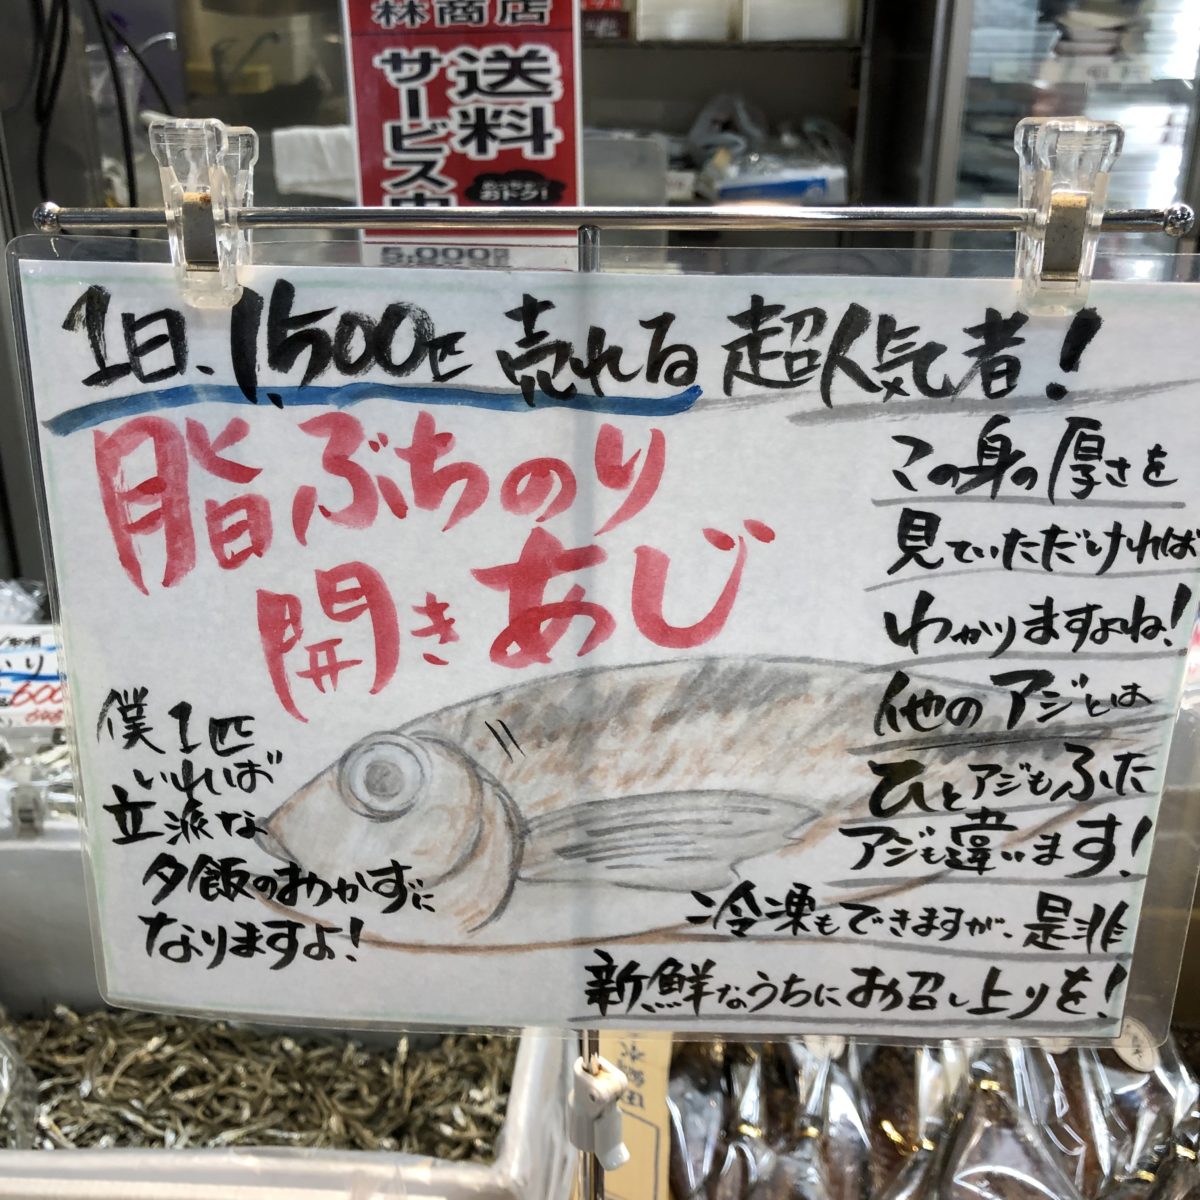 林商店
送料
サービス中
おトク!
5,000円
1日、1,500匹 売れる 超人気者!
脂ぶちのり
開きあじ
この身の厚さを
見ていただければ
わかりますよね!
他のアジとは
ひとアジもふた
アジも違います!
冷凍もできますが、是非
新鮮なうちにお召し上りを!
僕1匹
いれば
立派な
夕飯のおかずに
なりますよ!
600